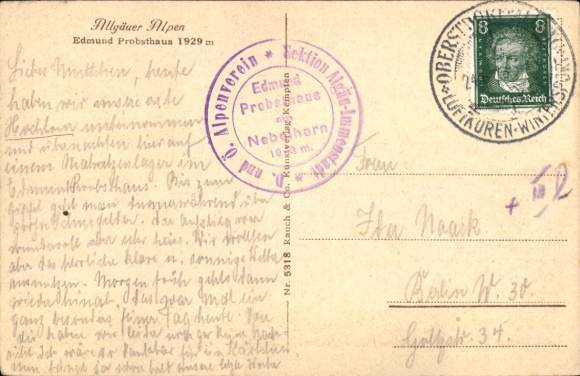 Allgäuer Alpen
Edmund Probsthaus 1929 m
Liebes Muttchen, heute
haben wir unsere erste
Hochtour unternommen
und übernachten hier auf
einem Matratzenlager im
Edmund Probsthaus. Bis zum
Gipfel geht man
große Schneefelder. Der Aufstieg war
wundervoll aber sehr heiss. Wir wollten
aber das herrliche klare u. sonnige Wetter
ausnutzen. Morgen früh gehts dann
wieder hinab. Das war mal ein
ganz besonders feiner Tag heute. Von
Dir haben wir leider noch gar keine Nach-
richt. Ich wäre so dankbar für ein
schon bald unsere Woche
D. und Ö. Alpenverein * Sektion Algäu-Immenstadt *
Edmund
Probsthaus
am
Nebelhorn
Nr. 5318 Rauch & Co. Kunstverlag Kempten
8 8
Deutsches Reich
OBERSTDORF
LUFTKUREN-WINTERSPORT
Frau
Naack
Berlin W. 30.
Goltzstr. 34.